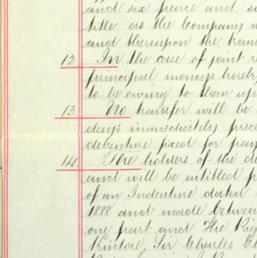 and six pence and
title as the Company
and thereupon the
12. In the case of joint
principal moneys hereby
to be owing to them
13. No transfer will be
days immediately
debenture fixed for
14. The holders of the
and will be entitled
of an Indenture dated
1888 and made between
one part and The
Kintore, Sir Charles